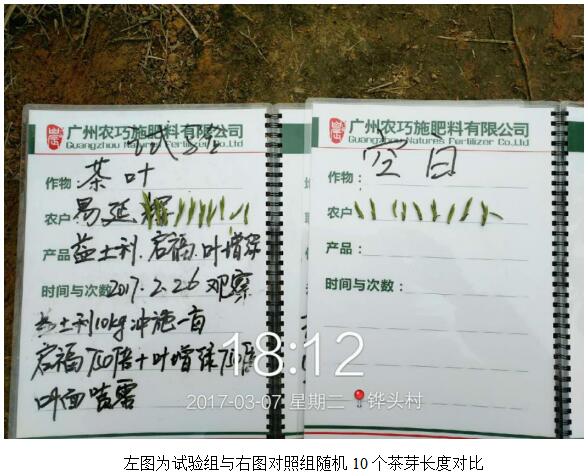 广州农巧施肥料有限公司
Guangzhou Natures Fertilizer Co.,Ltd
试验
作物：茶叶
农户：易延辉
产品：益士利、启福、叶增绿
时间与次数：2017.2.26 观察
益士利10kg冲施一亩
启福750倍+叶增绿750倍
叶面喷雾
广州农巧施肥料有限公司
Guangzhou Natures Fertilizer Co.,Ltd
空白
作物：
农户：
产品：
时间与次数：
18:12
2017-03-07 星期二 铧头村
左图为试验组与右图对照组随机 10 个茶芽长度对比